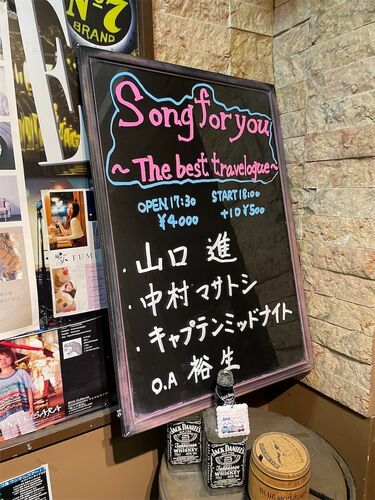 Nº7
BRAND
E
Song for you
~The best travelogue~
OPEN 17:30 START 18:00
¥4000 +1D ¥500
・山口 進
・中村 マサトシ
・キャプテンミッドナイト
O.A 裕生
FUM
JACK DANIEL'S
Tennessee
WHISKEY
JACK DANIEL'S
Tennessee
WHISKEY